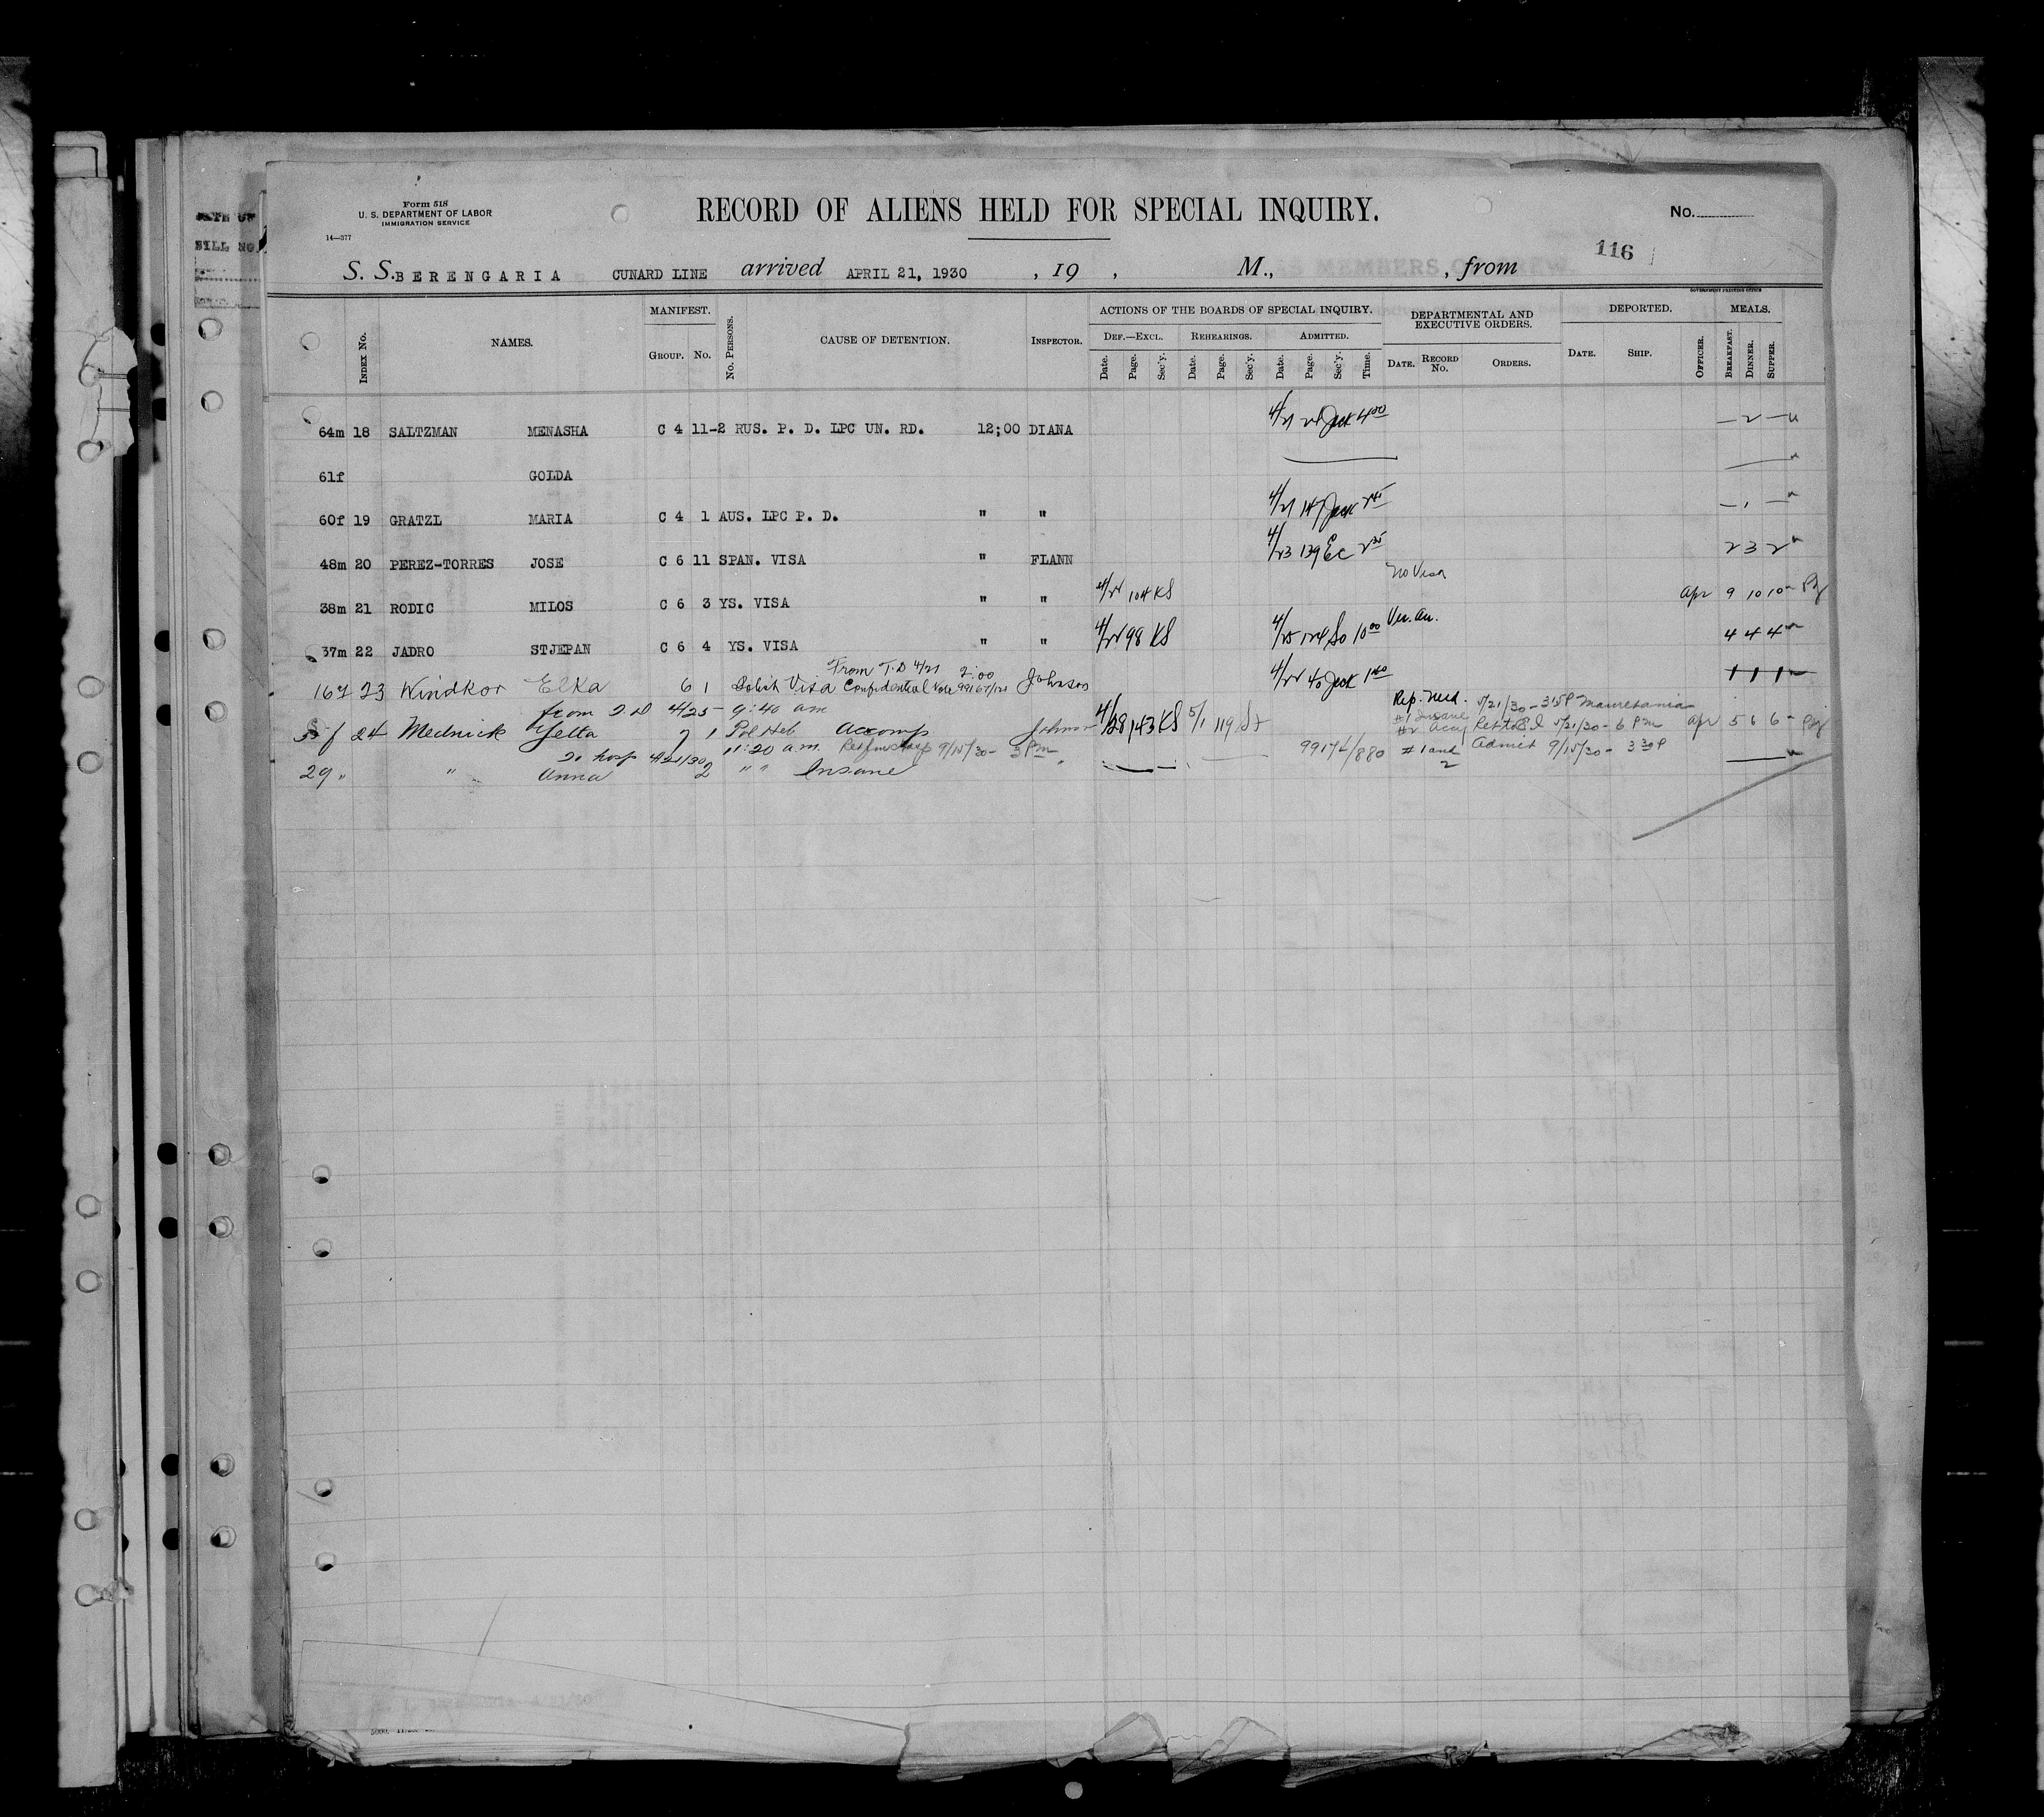 Form 518
U. S. DEPARTMENT OF LABOR
IMMIGRATION SERVICE
14—377
RECORD OF ALIENS HELD FOR SPECIAL INQUIRY.
No.
116
S. S. BERENGARIA CUNARD LINE arrived APRIL 21, 1930 , 19 , M., from
GOVERNMENT PRINTING OFFICE
INDEX No. NAMES. MANIFEST. GROUP. No. No. PERSONS. CAUSE OF DETENTION. INSPECTOR.
ACTIONS OF THE BOARDS OF SPECIAL INQUIRY. DEPARTMENTAL AND EXECUTIVE ORDERS. DEPORTED. MEALS.
DEF.—EXCL. REHEARINGS. ADMITTED.
Date. Page. Sec'y. Date. Page. Sec'y. Date. Page. Sec'y. Time. DATE. RECORD No. ORDERS. DATE. SHIP. OFFICER. BREAKFAST. DINNER. SUPPER.
64m 18 SALTZMAN MENASHA C 4 11-2 RUS. P. D. LPC UN. RD. 12;00 DIANA 4/21 4 00 — 2 —
61f GOLDA
60f 19 GRATZL MARIA C 4 1 AUS. LPC P. D. " " 4/21 147 2 45 — 1 —
48m 20 PEREZ-TORRES JOSE C 6 11 SPAN. VISA " FLANN 4/23 139 EC 2 35 2 3 2
No Visa
38m 21 RODIC MILOS C 6 3 YS. VISA " " 4/22 104 KS Apr 9 10 10
37m 22 JADRO STJEPAN C 6 4 YS. VISA " " 4/22 98 KS 4/25 124 So 10 00 4 4 4
From T.D 4/21 2:00
16f 23 Windkor Elka 6 1 Polish Visa Confidential Note Johnson 4/22 40 1 40 1 1 1
from T.D 4/25 - 9:40 am
f 24 Mednick Yetta 7 1 Pol Heb Accomp Johnson 4/28 143 KS 5/1 119 St Apr 5 6 6
5/21/30 - 315P Mauretania
#1 Insane
#2 Ret to 5/21/30 - 6 Pm
To hosp 4/21/30 11:20 a.m. 9/15/30 - 3 Pm 99174/880 #1 and 2 Admit 9/15/30 - 3 30P
29 " " Anna 2 " " Insane "